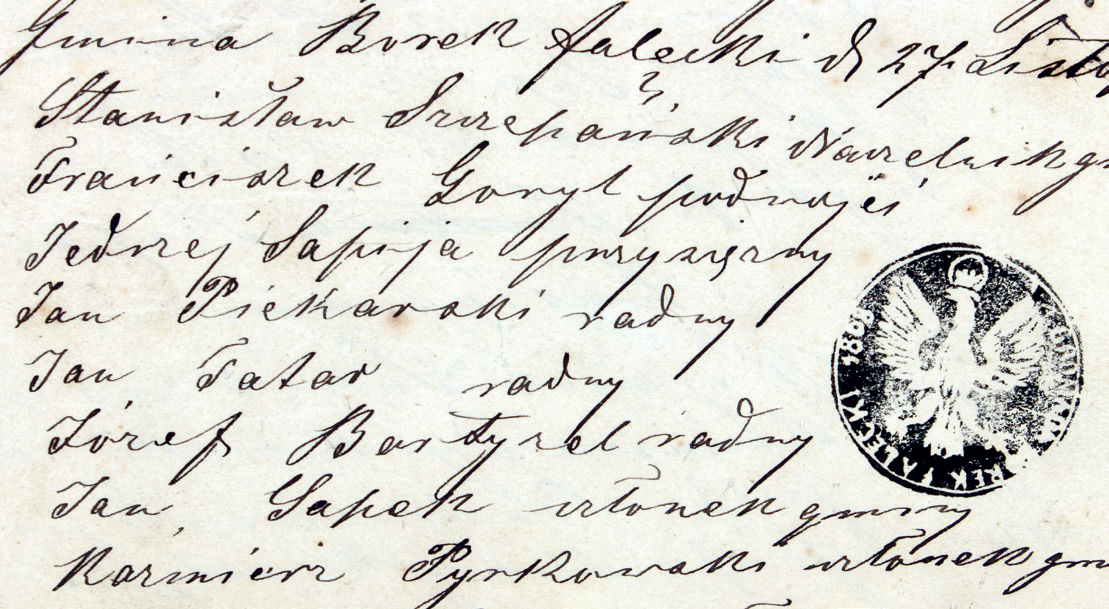 Gmina Borek fałecki d 27 Listop
Stanisław Szczepański Naczelnik g
Franciszek Goryl podwojci
Jedrzej Sapija przysięzny
Jan Piekarski radny
Jan Tatar radny
Józef Bartyzel radny
Jan Sapek członek gminy
Kaźmierz Pyrkowski członek gm
BOREK FAŁECKI 1868